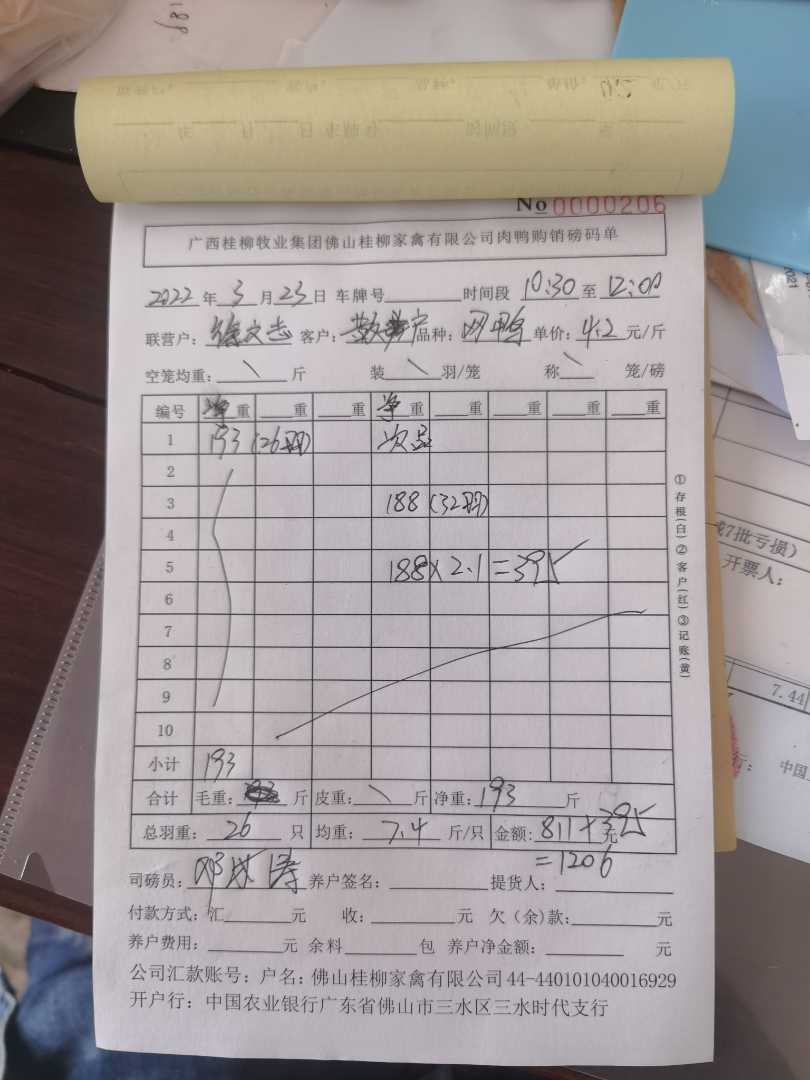 188
No 0000206
广西桂柳牧业集团佛山桂柳家禽有限公司肉鸭购销磅码单
2022 年 3 月 23 日 车牌号 时间段 10:30 至 12:00
联营户: 徐文志 客户: 品种: 肉鸭 单价: 4.2 元/斤
空笼均重: \ 斤 装 \ 羽/笼 称 \ 笼/磅
编号 净重 重 重 净重 重 重 重 重
1 193 (26羽) 次品
2
3 188 (32羽)
4
5 188×2.1=395
6
7
8
9
10
小计 193
合计 毛重: 斤 皮重: \ 斤 净重: 193 斤
总羽重: 26 只 均重: 7.4 斤/只 金额: 811+395 元
=1206
司磅员: 养户签名: 提货人:
付款方式: 汇 元 收: 元 欠(余)款: 元
养户费用: 元 余料 包 养户净金额: 元
公司汇款账号: 户名: 佛山桂柳家禽有限公司 44-440101040016929
开户行: 中国农业银行广东省佛山市三水区三水时代支行
①存根(白)②客户(红)③记账(黄)
7批亏损)
开票人:
7.44
行: 中国
2021